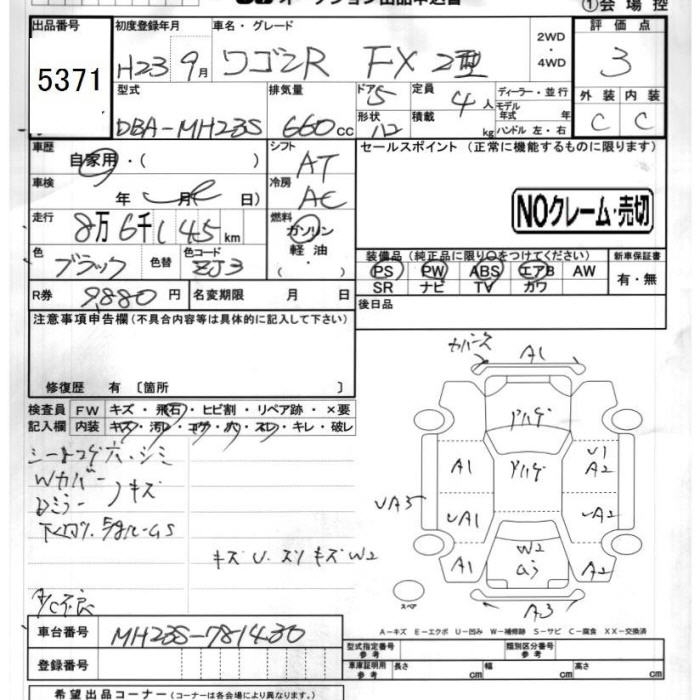 ①会場控
出品番号 初度登録年月 車名・グレード 2WD・4WD 評価点
5371 H23 9月 ワゴンR FX 2型 3
型式 排気量 ドア 5 定員 4人 ディーラー・並行 外装 内装
DBA-MH23S 660cc 形状 積載 kg モデル年式 年 C C
ハンドル 左・右
車歴 自家用・( ) シフト AT セールスポイント (正常に機能するものに限ります)
車検 年 月 日 冷房 AC
NOクレーム・売切
走行 8万6千145km 燃料 ガソリン・軽油・( )
色 ブラック 色替 色コード ZJ3
装備品(純正品に限り○をつけてください) 新車保証書
PS PW ABS エアB AW 有・無
SR ナビ TV カワ
R券 9880円 名変期限 月 日 後日品
注意事項申告欄(不具合内容等は具体的に記入して下さい)
修復歴 有 〔箇所 〕
検査員 FW キズ・飛石・ヒビ割・リペア跡・×要
記入欄 内装 キズ・汚レ・コゲ・穴・スレ・キレ・破レ
シートコゲ穴・シミ
Wカバー
Dミラー キズ
キズU.スリキズW2
A/C不良
A1
ハゲ
ハゲ
A1
U1
A2
UA3
UA1
UA2
A1
W2
G3
A2
A3
スペア
A-キズ E-エクボ U-凹み W-補修跡 S-サビ C-腐食 XX-交換済
車台番号 MH23S-781430
登録番号
型式指定番号参考 類別区分番号参考
車庫証明用参考 長さ cm 幅 cm 高さ cm
希望出品コーナー(コーナーは各会場により異なります。)